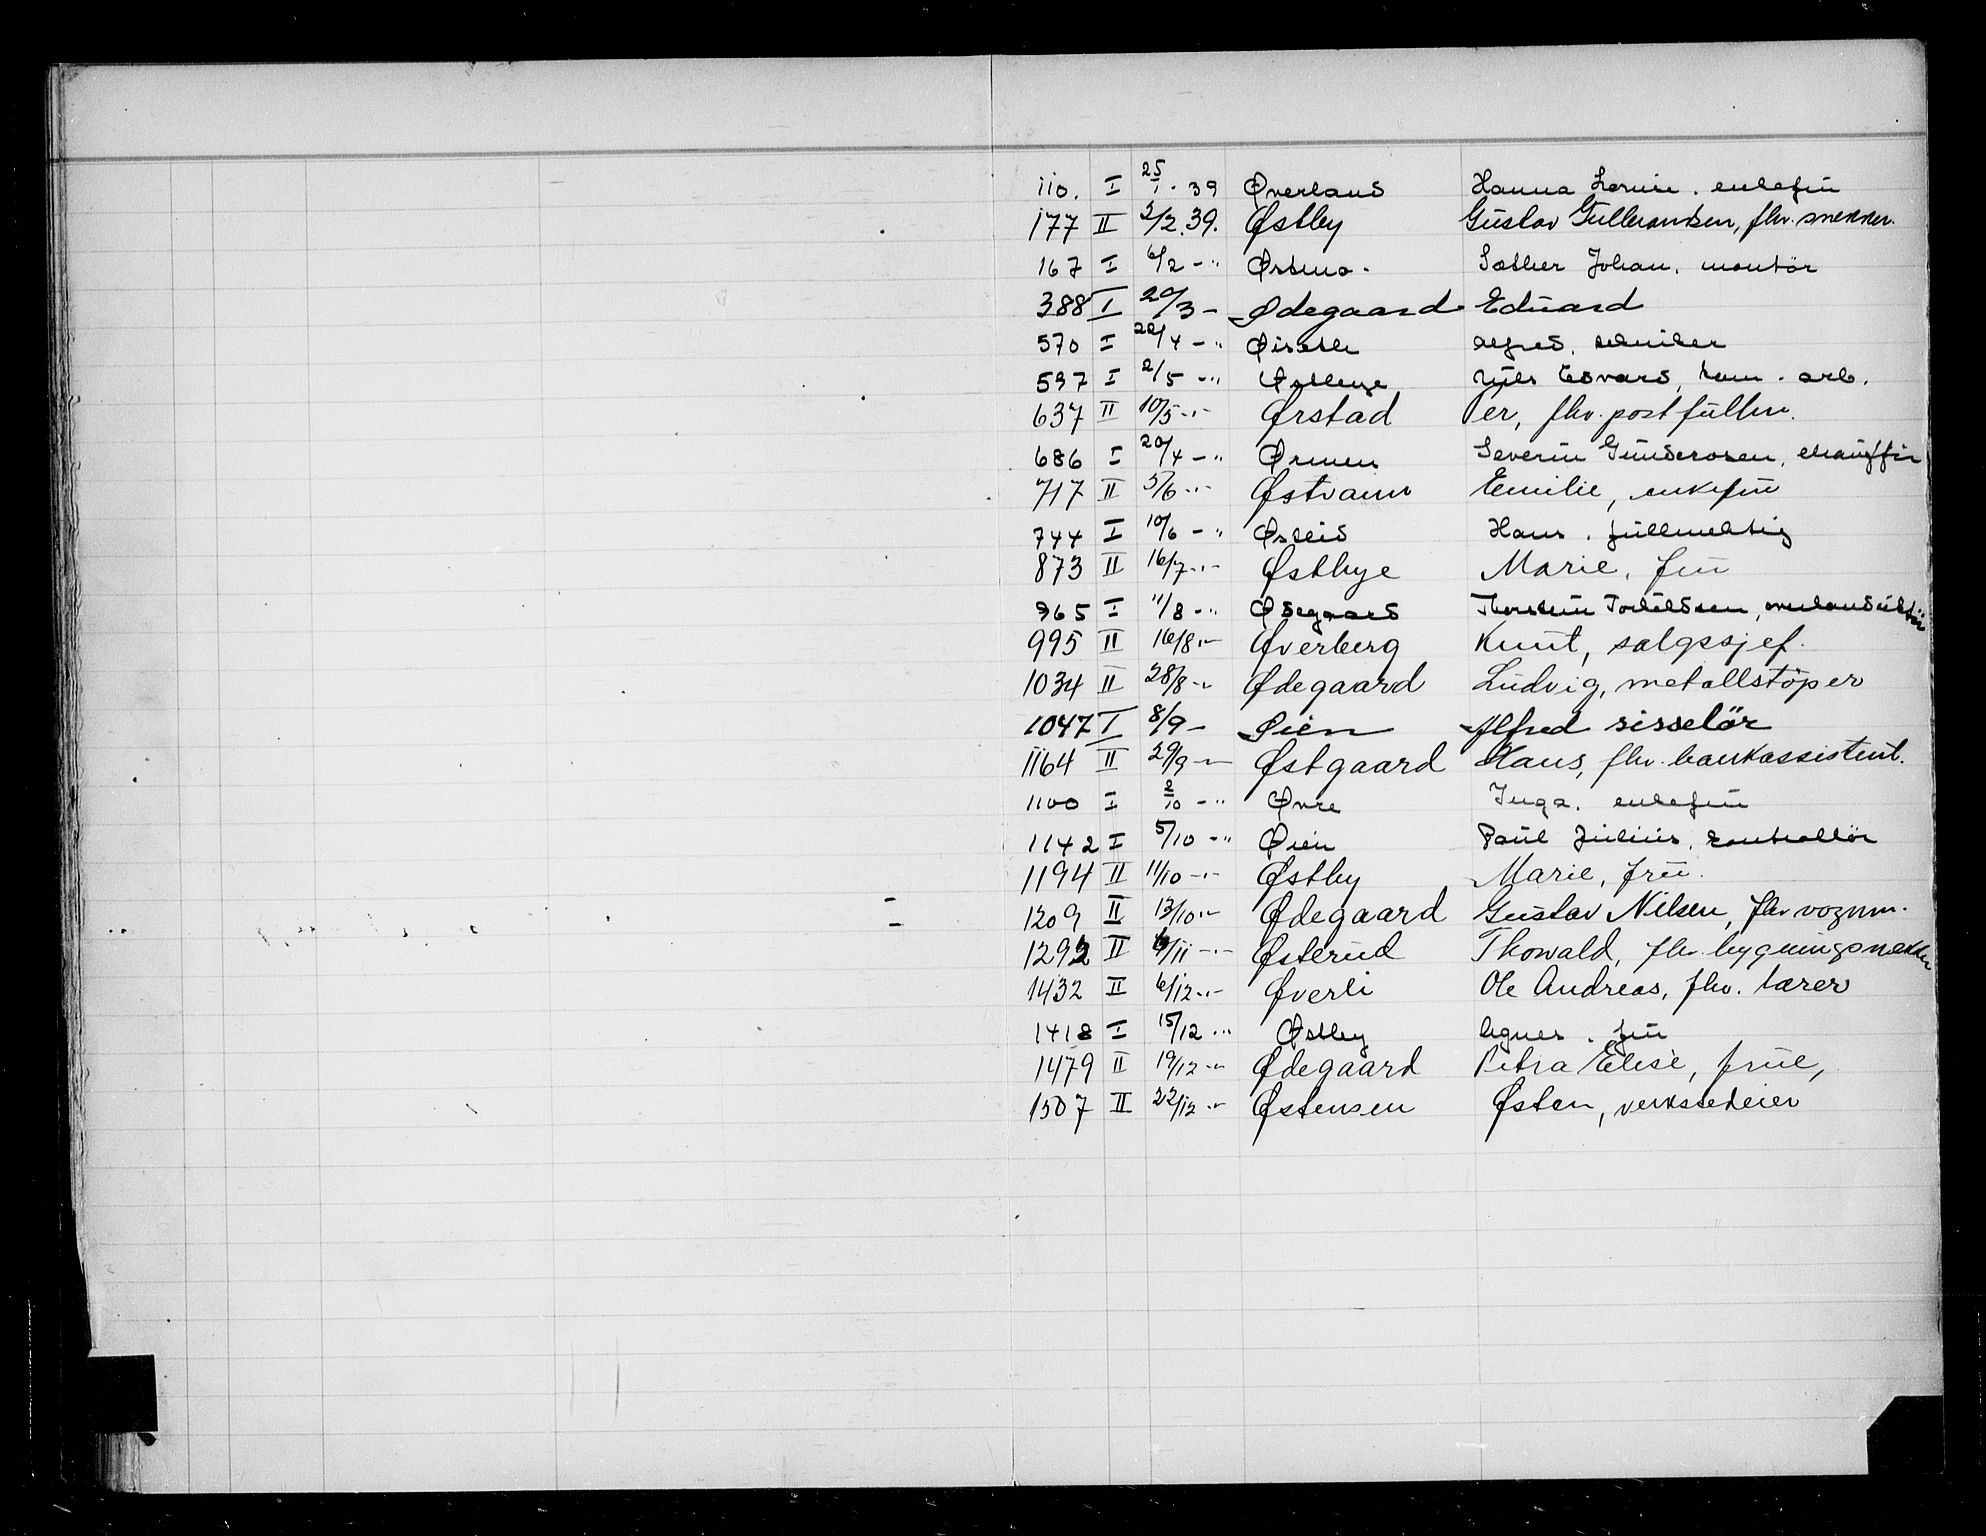 110. I 25/1 · 39 Øverland Hanna . enkefrü
177 II 3/2.39. Østby Güstav Gulbrandsen, fhv. snekker.
167 I 6/2 - " Østmo. Sæther Johan. montör
388 I 20/3 - Ødegaard Edüard
570 I 22/4 - " Øiseth Alfred. tekniker
597 I 2/5 - " Østbye Nils Edvard, kom. arb.
637 II 10/5 - " - Ørstad Per, fhv. postfüllm.
686 I 20/4 - " Ørmen Severin Gündersen, chauffür
717 II 5/6 - " - Østvann Emilie, enkefrü
744 I 10/6 - " Østlid Hans. füllmektig
873 II 16/7 - " - Østbye Marie, frü
965 I 11/8 - " Ødegaard Thorstein Torkildsen,
995 II 16/8 " - Øverberg Knut, salgssjef.
1034 II 28/8 - " Ødegaard Lüdvig, metallstöper
1047 I 8/9 - Øien Alfred sisselör
1164 II 29/9 - " - Østgaard Hans, fhv. bankassistent.
1100 I 2/10 - " Øvre Inga. enkefrü
1142 I 5/10 - " Øien Paül Jülius, kontrollör
1194 II 11/10 - " - Østby Marie, frü.
1209 II 13/10 " - Ødegaard Güstav Nilsen, fhv vognm.
1292 II 6/11 - " - Østerüd Thorvald, fhv. bygningssnekker
1432 II 6/12 - " - Øverli Ole Andreas, fhv. lærer
1418 I 15/12 - " Østby Agnes. frü
1479 II 19/12 - " Ødegaard Petra Elise, früe,
1507 II 22/12 - " Østensen Østen, verksteteier